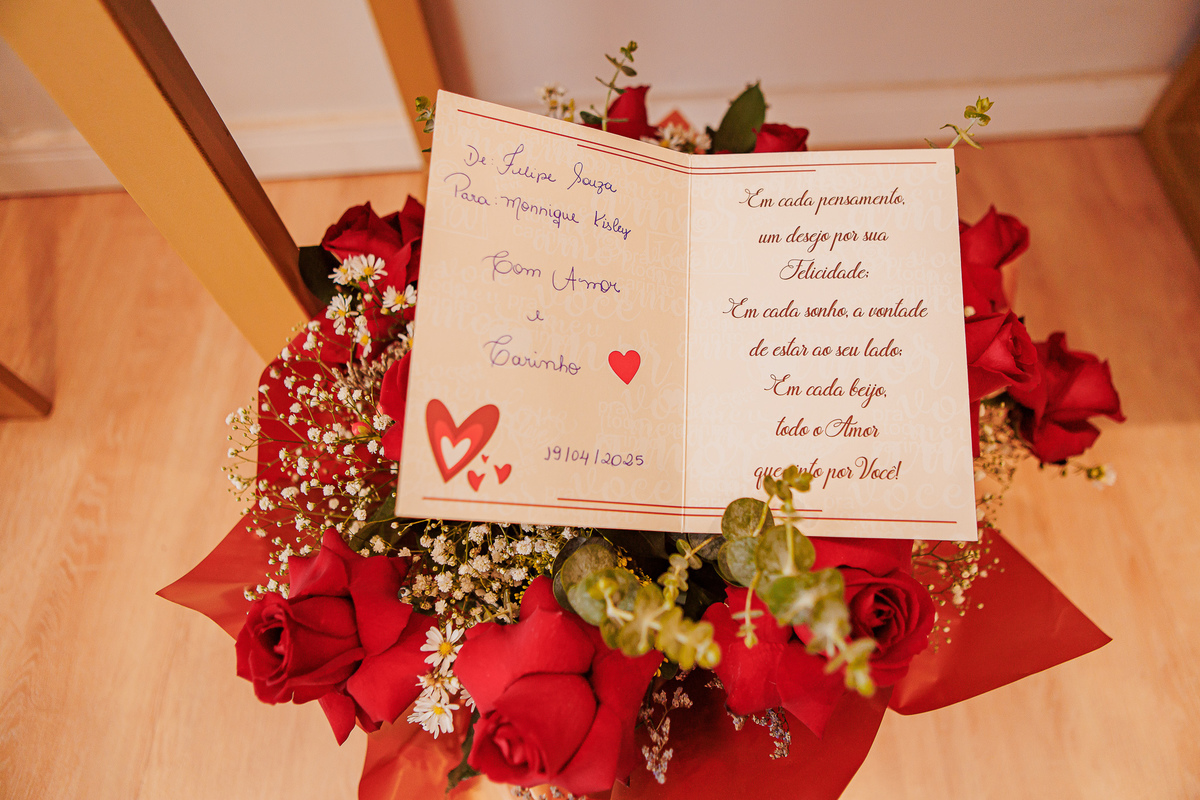 De: Felipe Souza
Para: Monnique Kisley
Com Amor
e
Carinho
19/04/2025
Em cada pensamento,
um desejo por sua
Felicidade;
Em cada sonho, a vontade
de estar ao seu lado;
Em cada beijo,
todo o Amor
que sinto por Você!